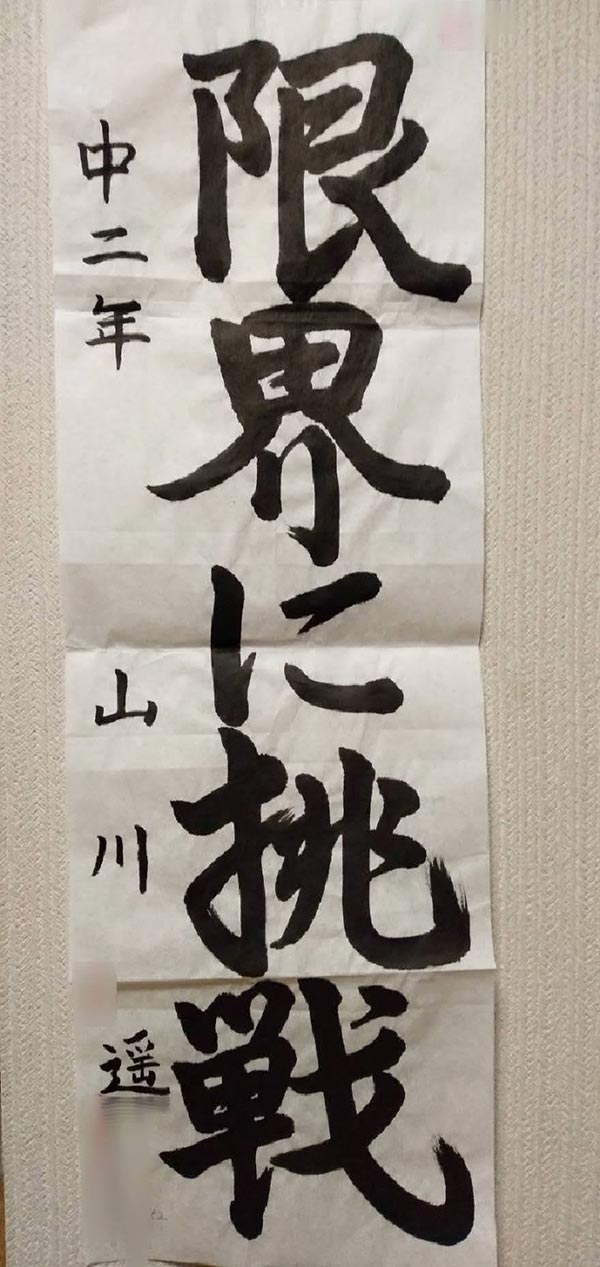 限界に挑戦
中二年 山川 遥